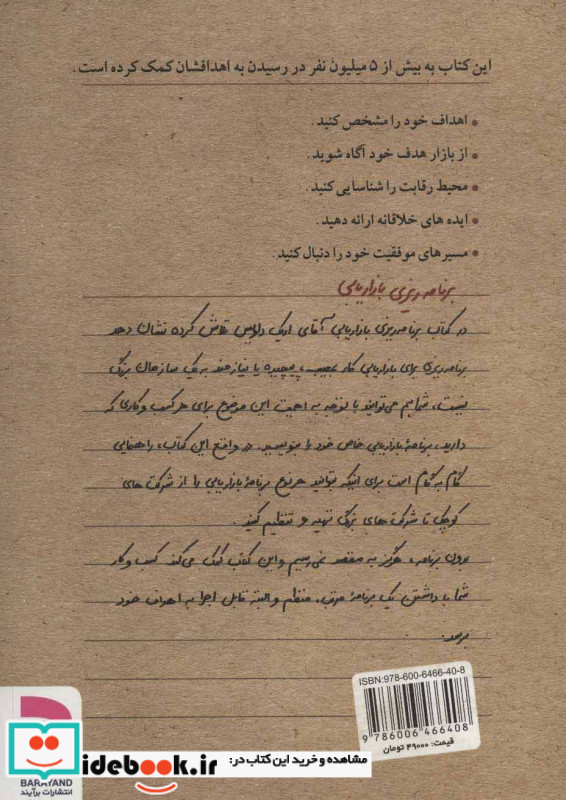 این کتاب به بیش از ۵ میلیون نفر در رسیدن به اهدافشان کمک کرده است.
• اهداف خود را مشخص کنید.
• از بازار هدف خود آگاه شوید.
• محیط رقابت را شناسایی کنید.
• ایده های خلاقانه ارائه دهید.
• مسیرهای موفقیت خود را دنبال کنید.
برنامه ریزی بازاریابی
در کتاب برنامه ریزی بازاریابی آقای اریک دلاوس تلاش کرده نشان دهد
برنامه ریزی برای بازاریابی کار عجیب، پیچیده یا نیازمند به یک سازمان بزرگ
نیست، شما هم می توانید با توجه به اهمیت این موضوع برای هر کسب و کاری که
دارید، برنامۀ بازاریابی خاص خود را بنویسید. در واقع این کتاب، راهنمایی
گام به گام است برای اینکه بتوانید هر نوع برنامۀ بازاریابی را از شرکت های
کوچک تا شرکت های بزرگ تهیه و تنظیم کنید.
بدون برنامه، هرگز به مقصد نمی رسیم و این کتاب کمک می کند کسب و کار
شما با داشتن یک برنامۀ مرتب، منظم و البته قابل اجرا به اهداف خود
برسد.
ISBN:978-600-6466-40-8
9 786006 466408
قیمت: ۴۹۰۰۰ تومان
BARAYAND
انتشارات برآیند
idebook.ir
مشاهده و خرید این کتاب در: